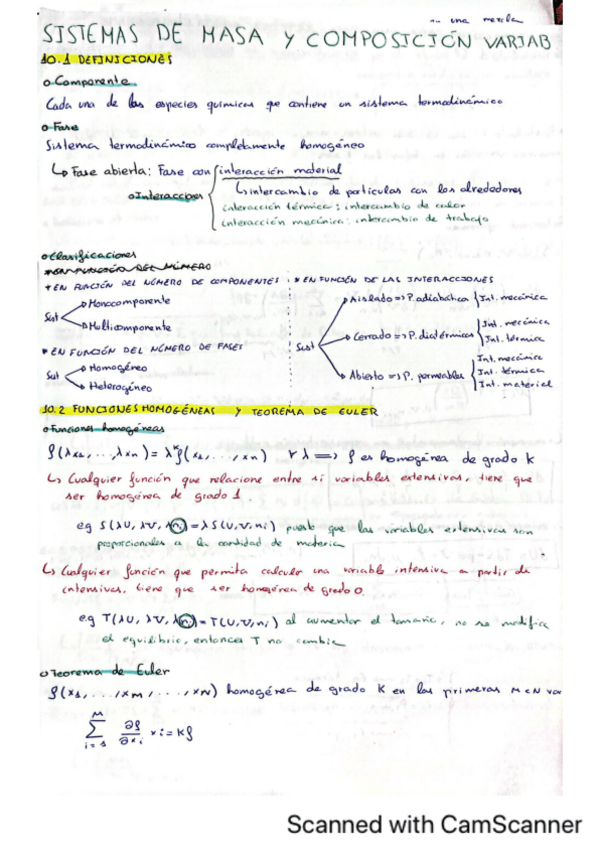 una mezcla
SISTEMAS DE MASA Y COMPOSICIÓN VARIAB
10.1 DEFINICIONES
o Componente
Cada una de las especies químicas que contiene un sistema termodinámico
o Fase
Sistema termodinámico completamente homogéneo
↳ Fase abierta: Fase con interacción material
o Interacciones
↳ intercambio de partículas con los alrededores
interacción térmica: intercambio de calor
interacción mecánica: intercambio de trabajo
o Clasificaciones
* EN FUNCIÓN DEL NÚMERO
* EN FUNCIÓN DEL NÚMERO DE COMPONENTES
Sist
Monocomponente
Multicomponente
* EN FUNCIÓN DEL NÚMERO DE FASES
Sist
Homogéneo
Heterogéneo
* EN FUNCIÓN DE LAS INTERACCIONES
Sist
Aislado => P. adiabática { Int. mecánica
Cerrado => P. diatérmicas { Int. mecánica
Int. térmica
Abierto => P. permeables { Int. mecánica
Int. térmica
Int. material
10.2 FUNCIONES HOMOGÉNEAS Y TEOREMA DE EULER
o Funciones homogéneas
f(λx1, ..., λxn) = λ^k f(x1, ..., xn) ∀ λ => f es homogénea de grado k
↳ Cualquier función que relacione entre sí variables extensivas, tiene que
ser homogénea de grado 1.
eg S(λU, λV, λni) = λS(U, V, ni) puesto que las variables extensivas son
proporcionales a la cantidad de materia
↳ Cualquier función que permita calcular una variable intensiva a partir de
extensivas, tiene que ser homogénea de grado 0.
eg T(λU, λV, λni) = T(U, V, ni) al aumentar el tamaño, no se modifica
el equilibrio, entonces T no cambia
o Teorema de Euler
f(x1, ..., xM, ..., xN) homogénea de grado K en las primeras M<N var
M
∑ ∂f/∂xi xi = kf
i=1
Scanned with CamScanner